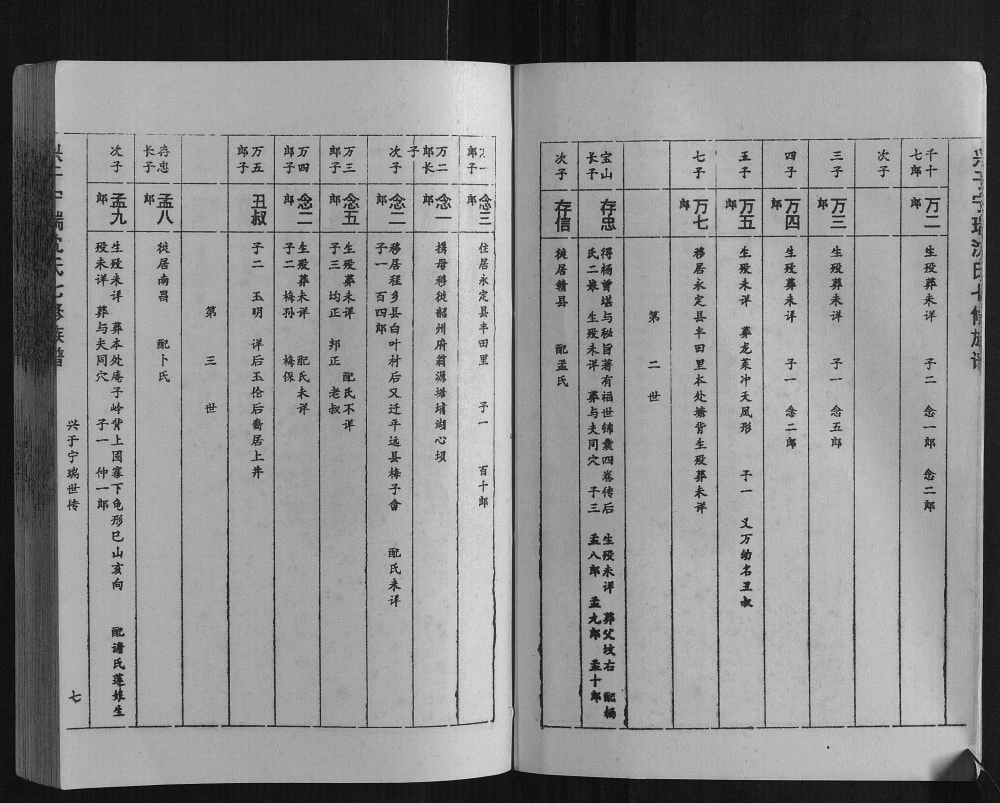 兴于宁瑞沈氏七修族谱
千十七郎
万二郎
生殁葬未详 子二 念一郎 念二郎
次子
三子
万三郎
生殁葬未详 子一 念五郎
四子
万四郎
生殁葬未详 子一 念二郎
五子
万五郎
生殁未详 葬龙菜冲天凤形 子一 又万幼名丑叔
七子
万七郎
移居永定县丰田里本处塘背生殁葬未详
第二世
宝山长子
存忠
得杨曾堪与秘旨著有福世锦囊四卷传后 生殁未详 葬父坟右 配杨
氏二娘 生殁未详 葬与夫同穴 子三 孟八郎 孟九郎 孟十郎
次子
存信
徙居赣县 配孟氏
郎子
念三
住居永定县丰田里 子一 百十郎
万二郎长子
念一郎
携母移徙韶州府翁源塘埔湖心坝
次子
念二郎
移居程乡县白叶村后又迁平远县梅子畲 配氏未详
子一 百四郎
万三郎子
念五郎
生殁葬未详 配氏不详
子三 均正 邦正 老叔
万四郎子
念二郎
生殁葬未详 配氏未详
子二 梅孙 梅保
万五郎子
丑叔
子二 玉明 详后玉伦后裔居上井
第三世
存忠长子
孟八郎
徙居南昌 配卜氏
次子
孟九郎
生殁未详 葬本处庵子岭背上围寨下龟形巳山亥向 配谢氏莲娘生
殁未详 葬与夫同穴 子一 仲一郎
兴于宁瑞沈氏七修族谱
兴于宁瑞世传
七